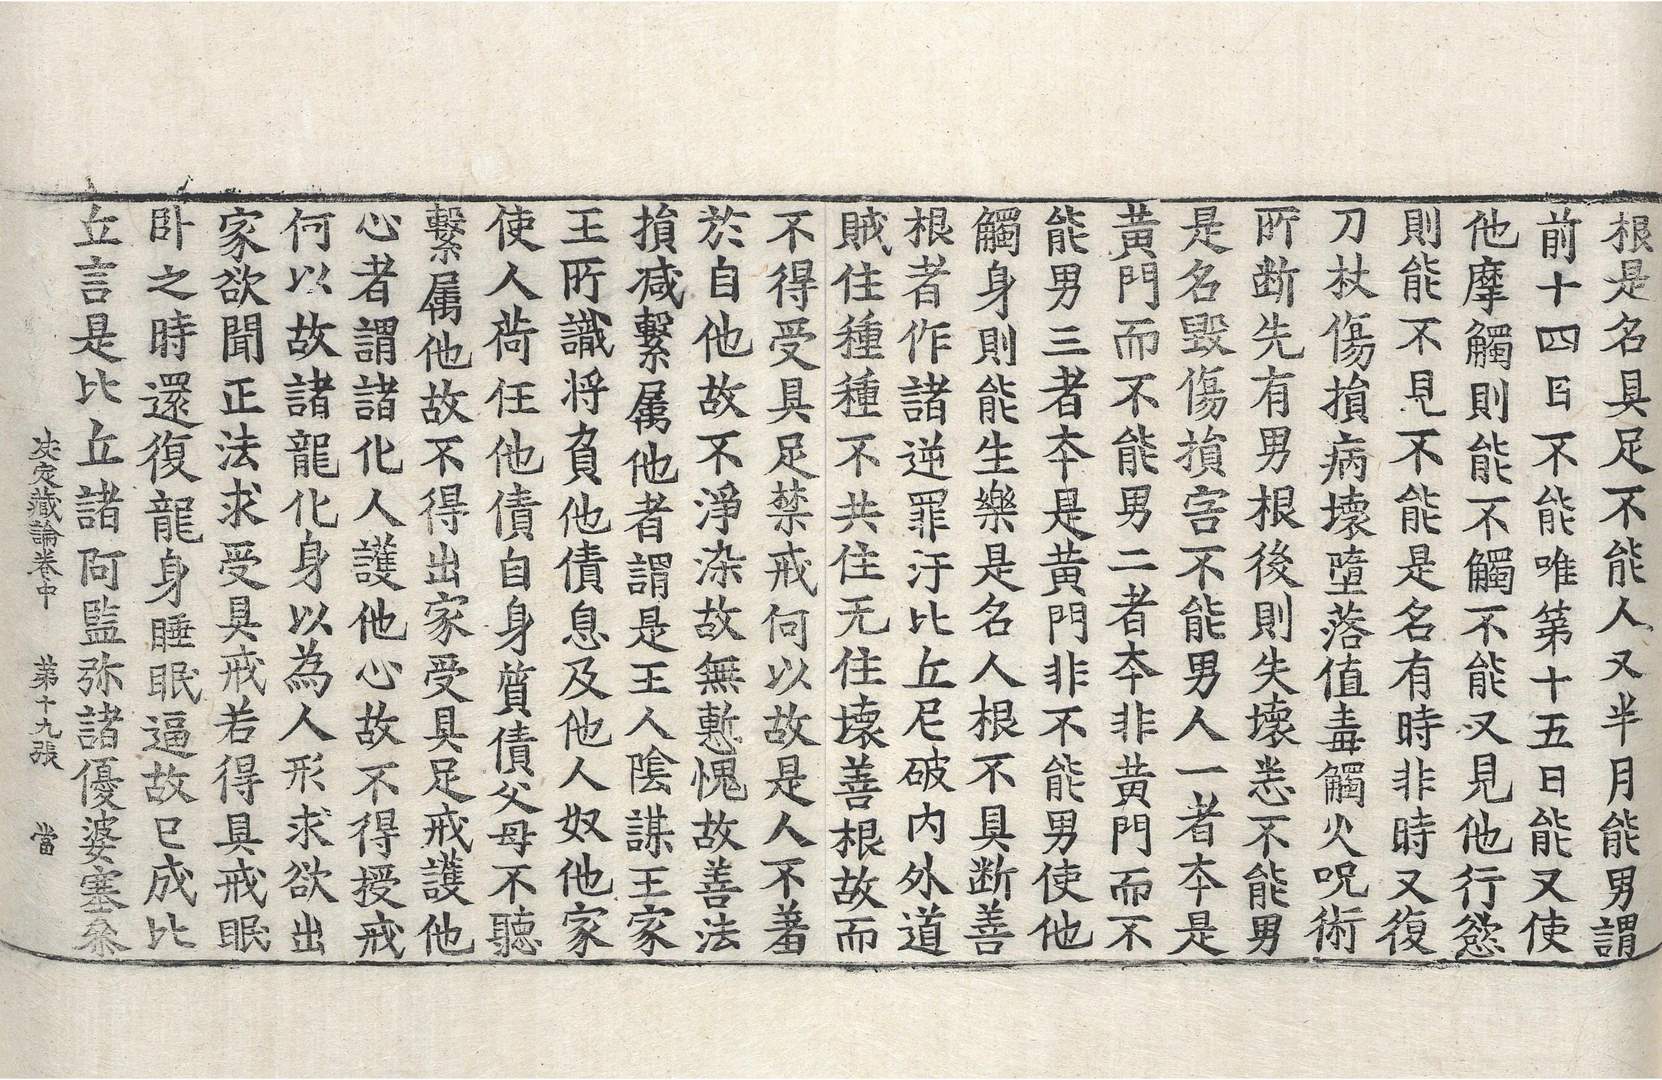 根是名具足不能人又半月能男謂
前十四日不能唯第十五日能又使
他摩觸則能不觸不能又見他行慾
則能不見不能是名有時非時又復
刀杖傷損病壞墮落值毒觸火呪術
所断先有男根後則失壞恙不能男
是名毀傷損害不能男人一者本是
黄門而不能男二者本非黄門而不
能男三者本是黄門非不能男使他
觸身則能生樂是名人根不具断善
根者作諸逆罪汙比丘尼破内外道
賊住種種不共住无住壞善根故而
不得受具足禁戒何以故是人不著
於自他故不淨染故無慙愧故善法
損减繫属他者謂是王人陰謀王家
王所識将負他債息及他人奴他家
使人荷任他債自身質債父母不聽
繫属他故不得出家受具足戒護他
心者謂諸化人護他心故不得授戒
何以故諸龍化身以為人形求欲出
家欲聞正法求受具戒若得具戒眠
卧之時還復龍身睡眠逼故已成比
丘言是比丘諸阿監弥諸優婆塞条
决定藏論卷中 第十九張 當